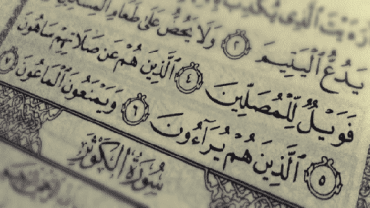 ٱلَّذِى يُكَذِّبُ
يَدُعُّ ٱلْيَتِيمَ ٢ وَلَا يَحُضُّ عَلَىٰ طَعَامِ ٱلْمِسْكِينِ
فَوَيْلٌ لِّلْمُصَلِّينَ ٤ ٱلَّذِينَ هُمْ عَن صَلَاتِهِمْ سَاهُونَ
٥ ٱلَّذِينَ هُمْ يُرَآءُونَ ٦ وَيَمْنَعُونَ ٱلْمَاعُونَ ٧
سُورَةُ الكَوْثَرِ